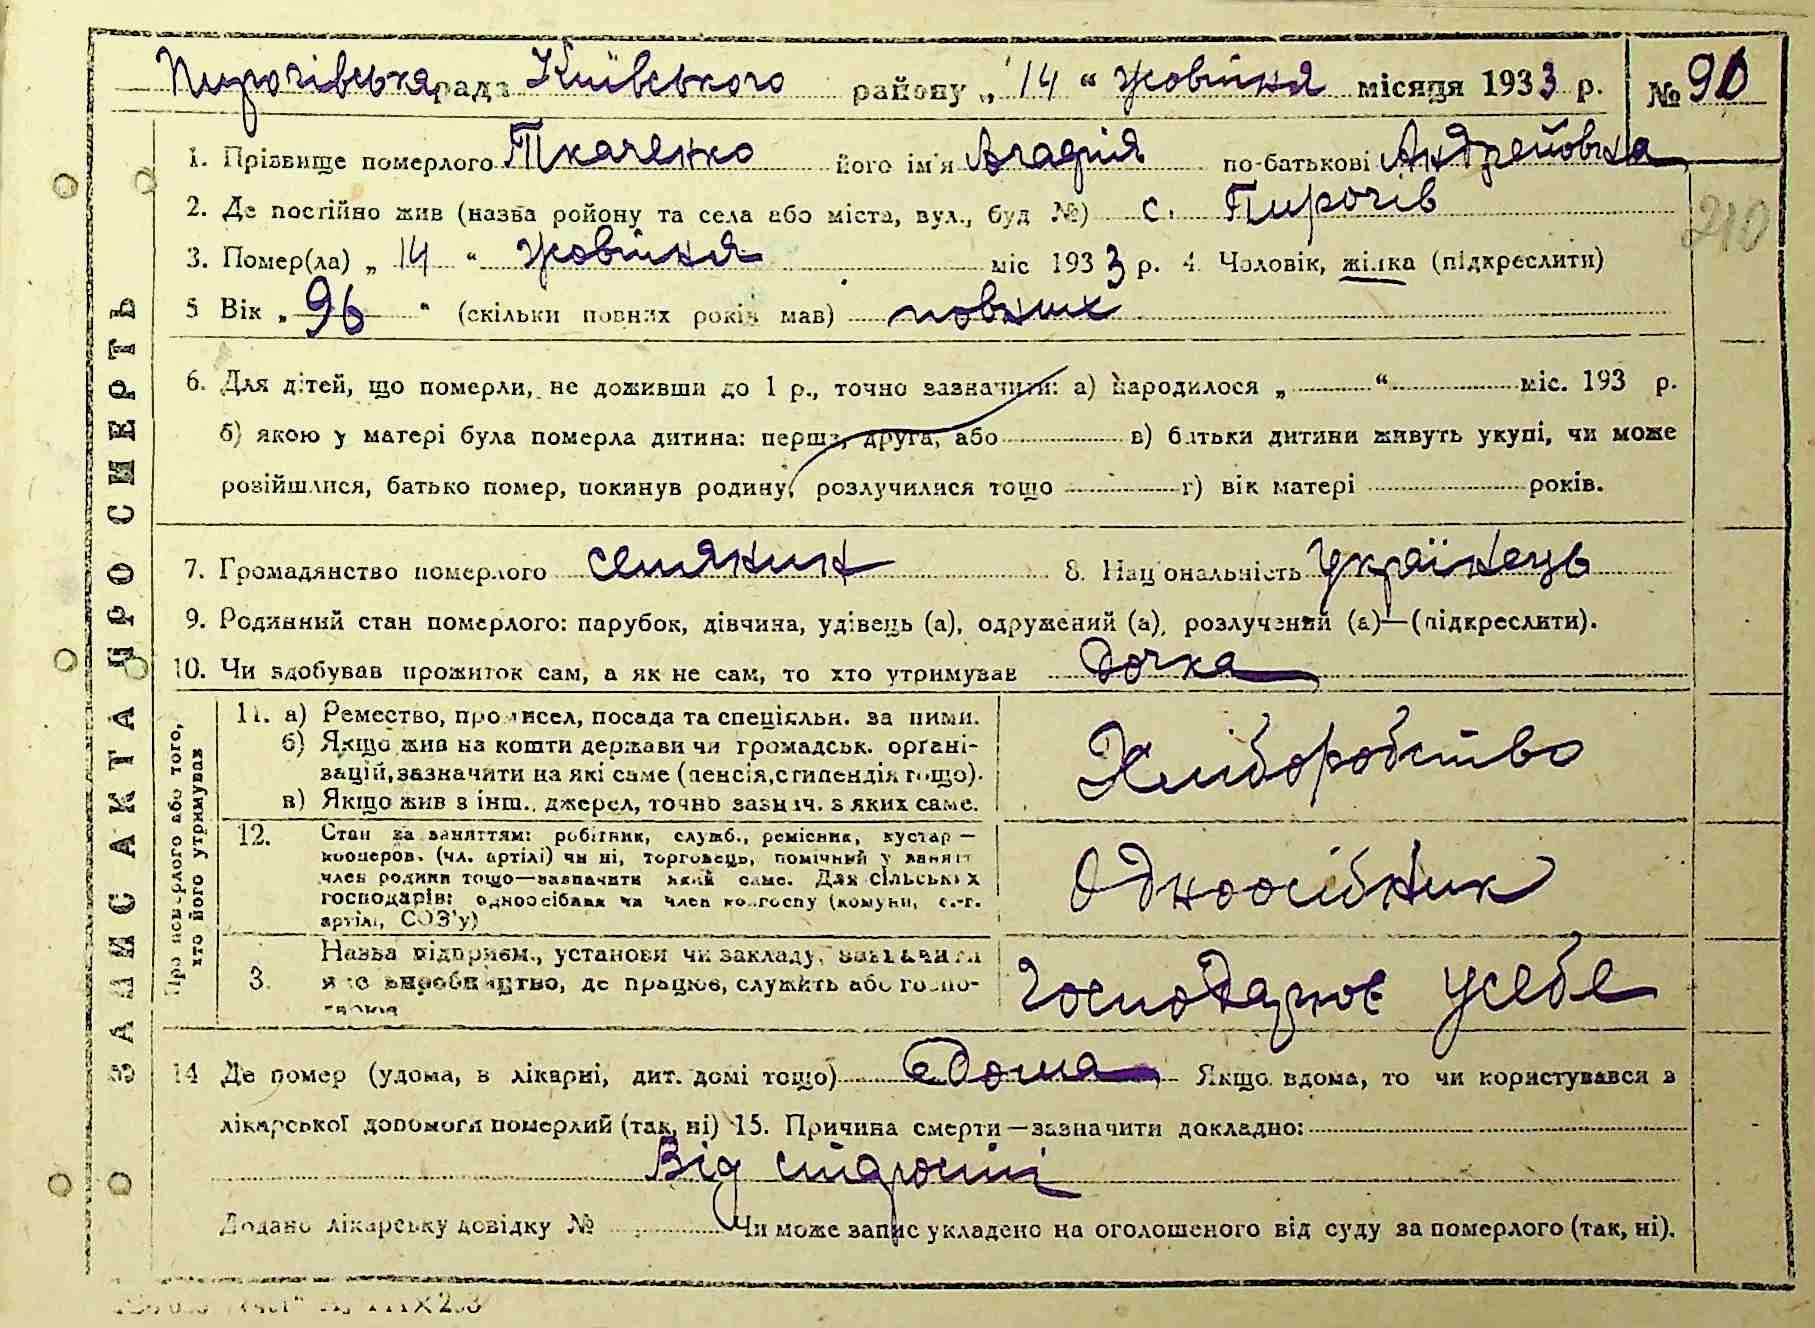 Пирогівська рада Київського району „14" жовтня місяця 1933 р. № 90
1. Прізвище померлого Ткаченко його ім'я по-батькові Андрейовна
210
2. Де постійно жив (назва ройону та села або міста, вул., буд №) с. Пирогів
3. Помер(ла) „14" жовтня міс 1933 р. 4. Чоловік, жінка (підкреслити)
5 Вік „96" (скільки повних років мав) повних
6. Для дітей, що померли, не доживши до 1 р., точно зазначити: а) народилося „ " міс. 193 р.
б) якою у матері була померла дитина: перша, друга, або в) батьки дитини живуть укупі, чи може
розійшлися, батько помер, покинув родину, розлучилися тощо г) вік матері років.
7. Громадянство померлого селянин 8. Національність Українець
9. Родинний стан померлого: парубок, дівчина, удівець (а), одружений (а), розлучений (а)—(підкреслити).
10. Чи здобував прожиток сам, а як не сам, то хто утримував Дочка
ЗАПИС АКТА ПРО СМЕРТЬ
Про померлого або того,
хто його утримував
11. а) Ремество, промисел, посада та спеціяльн. за ними.
б) Якщо жив на кошти держави чи громадськ. органі-
зацій, зазначити на які саме (пенсія, стипендія тощо).
в) Якщо жив з інш. джерел, точно зазнач. з яких саме.
Хліборобство
12. Стан за заняттям: робітник, служб., ремісник, кустар —
кооперов. (чл. артілі) чи ні, торговець, помічний у занятт
член родини тощо—зазначити який саме. Для сільських
господарів: одноосібник чи член колгоспу (комуни, с.-г.
артілі, СОЗ'у)
Одноосібник
3. Назва підприєм., установи чи закладу, зазначити
яке виробництво, де працює, служить або госпо-
дарює
Господарює усебе
14 Де помер (удома, в лікарні, дит. домі тощо) Дома Якщо вдома, то чи користувався з
лікарської допомоги померлий (так, ні) 15. Причина смерти—зазначити докладно:
Від старости
Додано лікарську довідку № Чи може запис укладено на оголошеного від суду за померлого (так, ні).